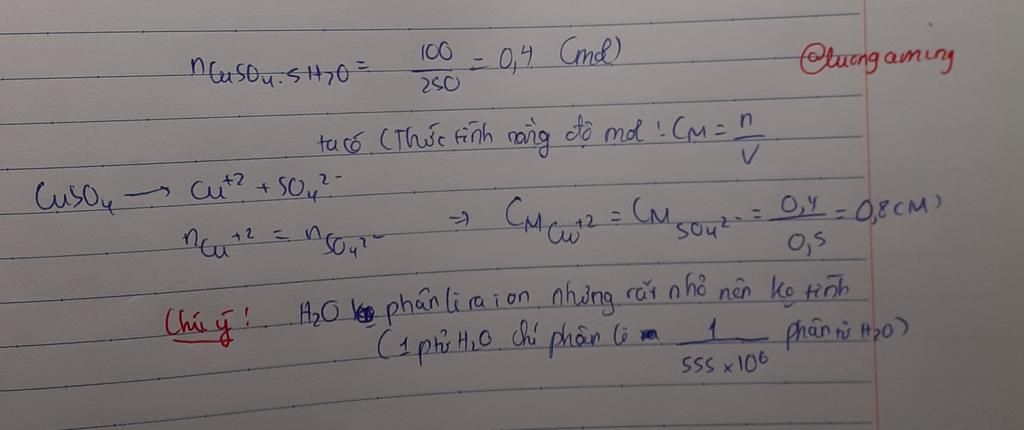 nCuSO4.5H2O = 100/250 = 0,4 (mol)
@tuongaming
ta có CThức tính nồng độ mol : CM = n/V
CuSO4 → Cu+2 + SO4 2-
nCu+2 = nSO4 2- ⇒ CM Cu+2 = CM SO4 2- = 0,4/0,5 = 0,8 (M)
Chú ý! H2O phân li ra ion nhưng rất nhỏ nên ko tính
(1 ptử H2O chỉ phân li 1/555 x 10^6 phân tử H2O)